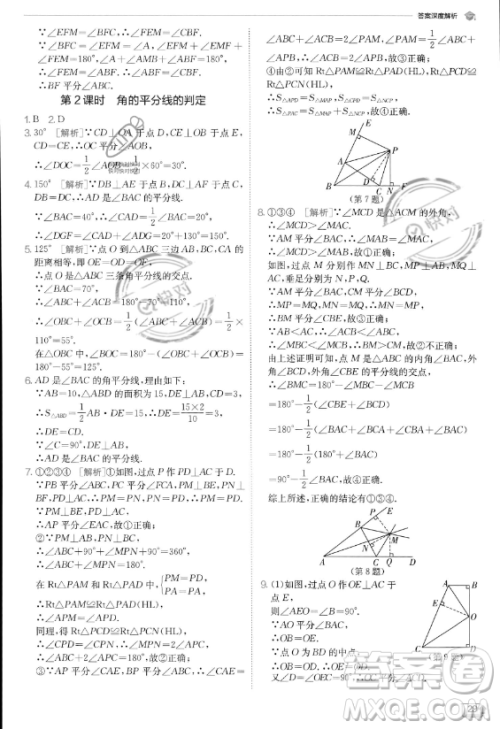 答案深度解析
∵∠EFM=∠CFM,∴∠EFM=∠CBF.
∵∠BFC+∠EFM+∠CFM=
180°,∠A+∠ABM+∠AMB=
180°,∴∠AFB=∠BFC,
∴BF平分∠AFC.
第2课时 角的平分线的判定
1.B 2.D
3.30° [解析]∵CD⊥OA于点D,CE⊥OB于点E,
∴∠DOC=1/2∠AOB=1/2×60°=30°.
4.150° [解析]∵DB⊥AE于点B,DC⊥AF于点C,
∴AD是∠BAC的平分线.
∵∠BAC=40°,∴∠CAD=1/2∠BAC=20°,
∴∠DGF=∠CAD+∠ADG=20°+130°=150°.
5.125° [解析]∵点O到△ABC三边AB,BC,CA的
距离相等,即OE=OD=OF,
∴点O是△ABC三条角平分线的交点.
∵∠BAC=70°,
∴∠ABC+∠ACB=110°,
∴∠OBC+∠OCB=1/2(∠ABC+∠ACB)=1/2×
110°=55°.
在△OBC中,∠BOC=180°-(∠OBC+∠OCB)=
180°-55°=125°.
6.AD是∠BAC的角平分线,理由如下:
∵AB=10,△ABD的面积为15,DE⊥AB,
∴S△ABD=1/2AB·DE=15,∴DE=15×2/10=3,
∴DE=CD.
又∵∠C=90°,DE⊥AB,
∴AD是∠BAC的角平分线.
7.①②③④ [解析]①如图,过点P作PD⊥AC于D.
∵PB平分∠ABC,CP平分∠FCA,PM⊥BE,PN⊥
BF,PD⊥AC,∴PM=PN,PN=PD,∴PM=PD,
∴AP平分∠EAC,故①正确;
②∵PM⊥AB,PN⊥BC,
∴∠ABC+90°+∠MPN+90°=360°,
∴∠ABC+∠MPN=180°,故②正确;
在Rt△PAM和Rt△PAD中,{PM=PD, PA=PA,
∴Rt△PAM≌Rt△PAD(HL),
∴∠APM=∠APD.
同理,得Rt△PCD≌Rt△PCN(HL),
∴∠CPD=∠CPN,∴∠MPN=2∠APC,
∴∠ABC+2∠APC=180°,故②正确;
③∵BP平分∠ABC,AP平分∠CAE,∠CAE=∠ABC
+∠ACB=2∠PAM,∠PAM=1/2∠ABC+
∠APB,∴∠ACB=2∠APB,故③正确;
④由②可知Rt△PAM≌Rt△PAD,Rt△PCD≌
Rt△PCN,
∴S△APD=S△PAM,S△CPD=S△PCN,
∴S△PAM+S△PCN=S△PAC,故④正确.
(第7题)
8.①③④ [解析]∵∠MCD是△ACM的外角,
∴∠MCD>∠MAC.
∵AM平分∠BAC,∴∠MAB=∠MAC,
∴∠MCD>∠MAB,故①正确;
如图,过点M分别作MN⊥BC,MP⊥AB,MQ⊥
AC,垂足分别为N,P,Q.
∵AM平分∠BAC,CM平分∠BCD,
∴MP=MQ,MN=MQ,∴MN=MP,
∴BM平分∠CBE,故③正确,
∴∠CBM=1/2∠CBE,不能得到∠CBM=∠ACB,
故②不正确;
由上述证明可知,点M是△ABC的内角∠BAC,外
角∠BCD,外角∠CBE的平分线的交点,
∴∠BMC=180°-∠MBC-∠MCB
=180°-1/2(∠CBE+∠BCD)
=180°-1/2(∠BAC+∠ACB+∠CBA+∠BAC)
=180°-1/2(180°+∠BAC)
=90°-1/2∠BAC,故④正确.
综上所述,正确的结论有①③④.
(第8题)
9.(1)如图,过点O作OE⊥AC于
点E,
则∠AEO=∠B=90°.
∵AO平分∠BAC,
∴OB=OE.
∵点O为BD的中点,
∴OB=OD,∴OE=OD.
又∵∠D=∠OEC=90°,
(第9题)
29
答案圈
MXQE.COM